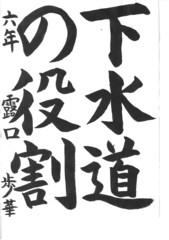 下水道
の役割
六年 露口 歩華